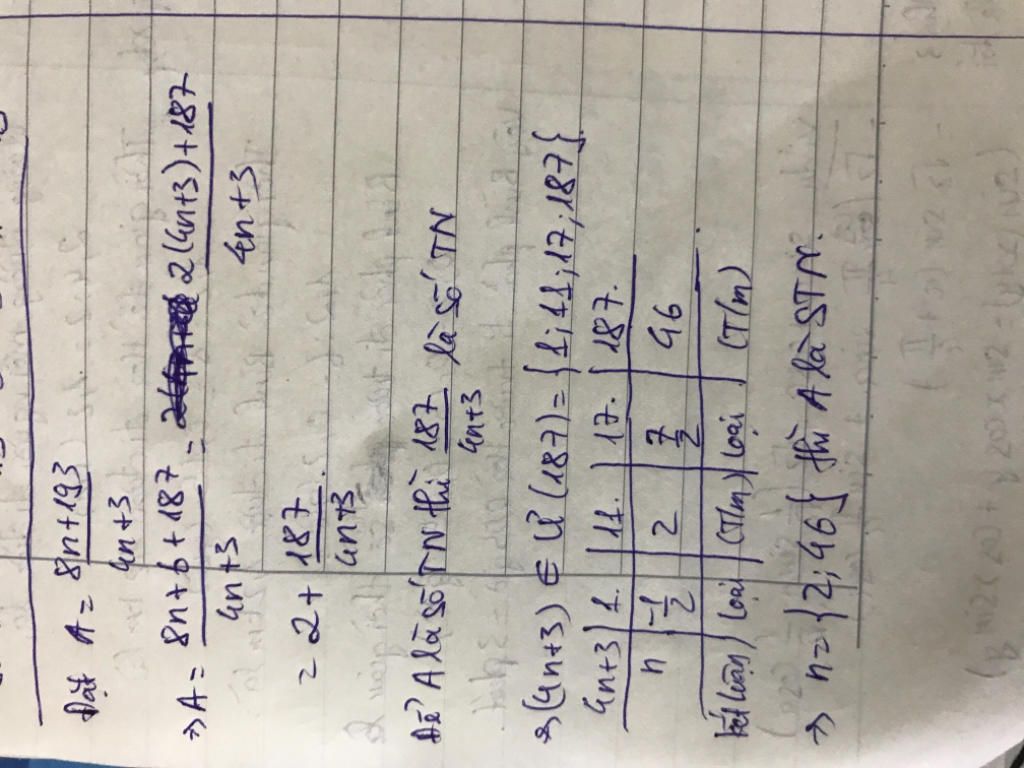 Đặt A = 8n+193 / 4n+3
=> A = 8n+6+187 / 4n+3 = 2(4n+3)+187 / 4n+3
= 2 + 187 / 4n+3.
Để A là số TN thì 187 / 4n+3 là số TN
=> (4n+3) ∈ Ư(187) = {1; 11; 17; 187}.
4n+3 | 1. | 11. | 17. | 187.
n | -1/2 | 2 | 7/2 | 46
kết luận | loại | (T/m) | loại | (T/m)
=> n = {2; 46} thì A là STN.